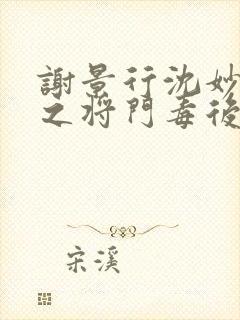 謝景行沈妙
之將門毒後
宋溪